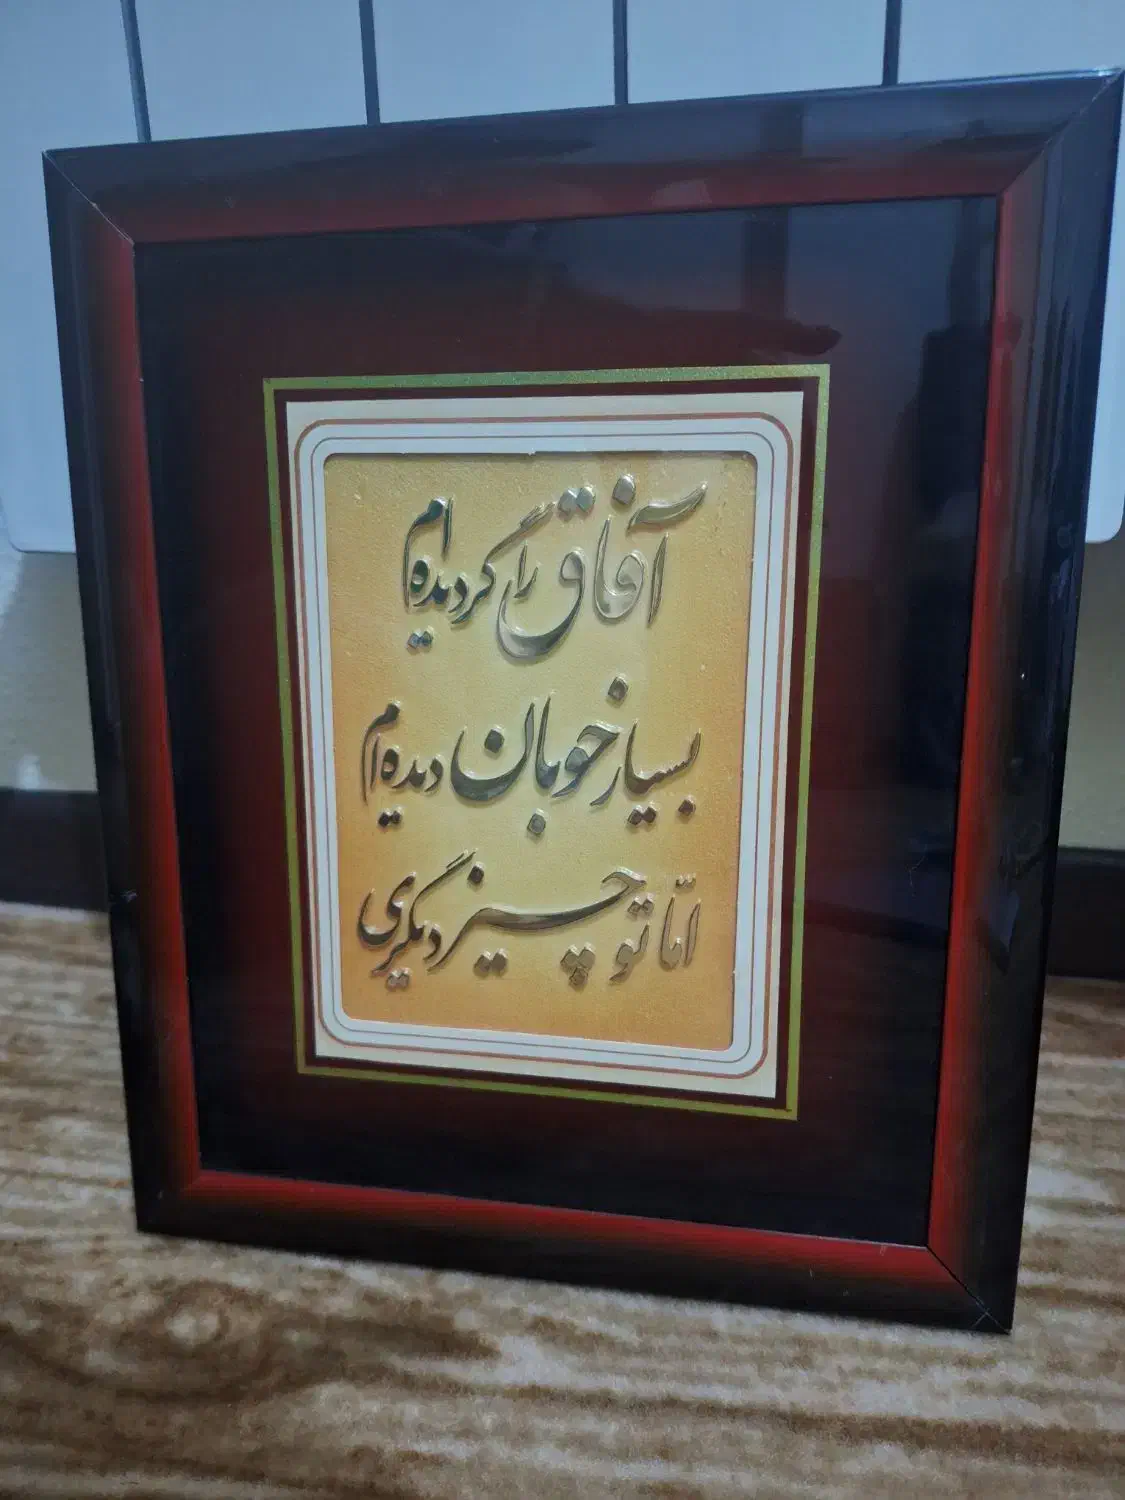 آفاق را گردیده‌ام
بسیار خوبان دیده‌ام
امّا تو چیز دیگری